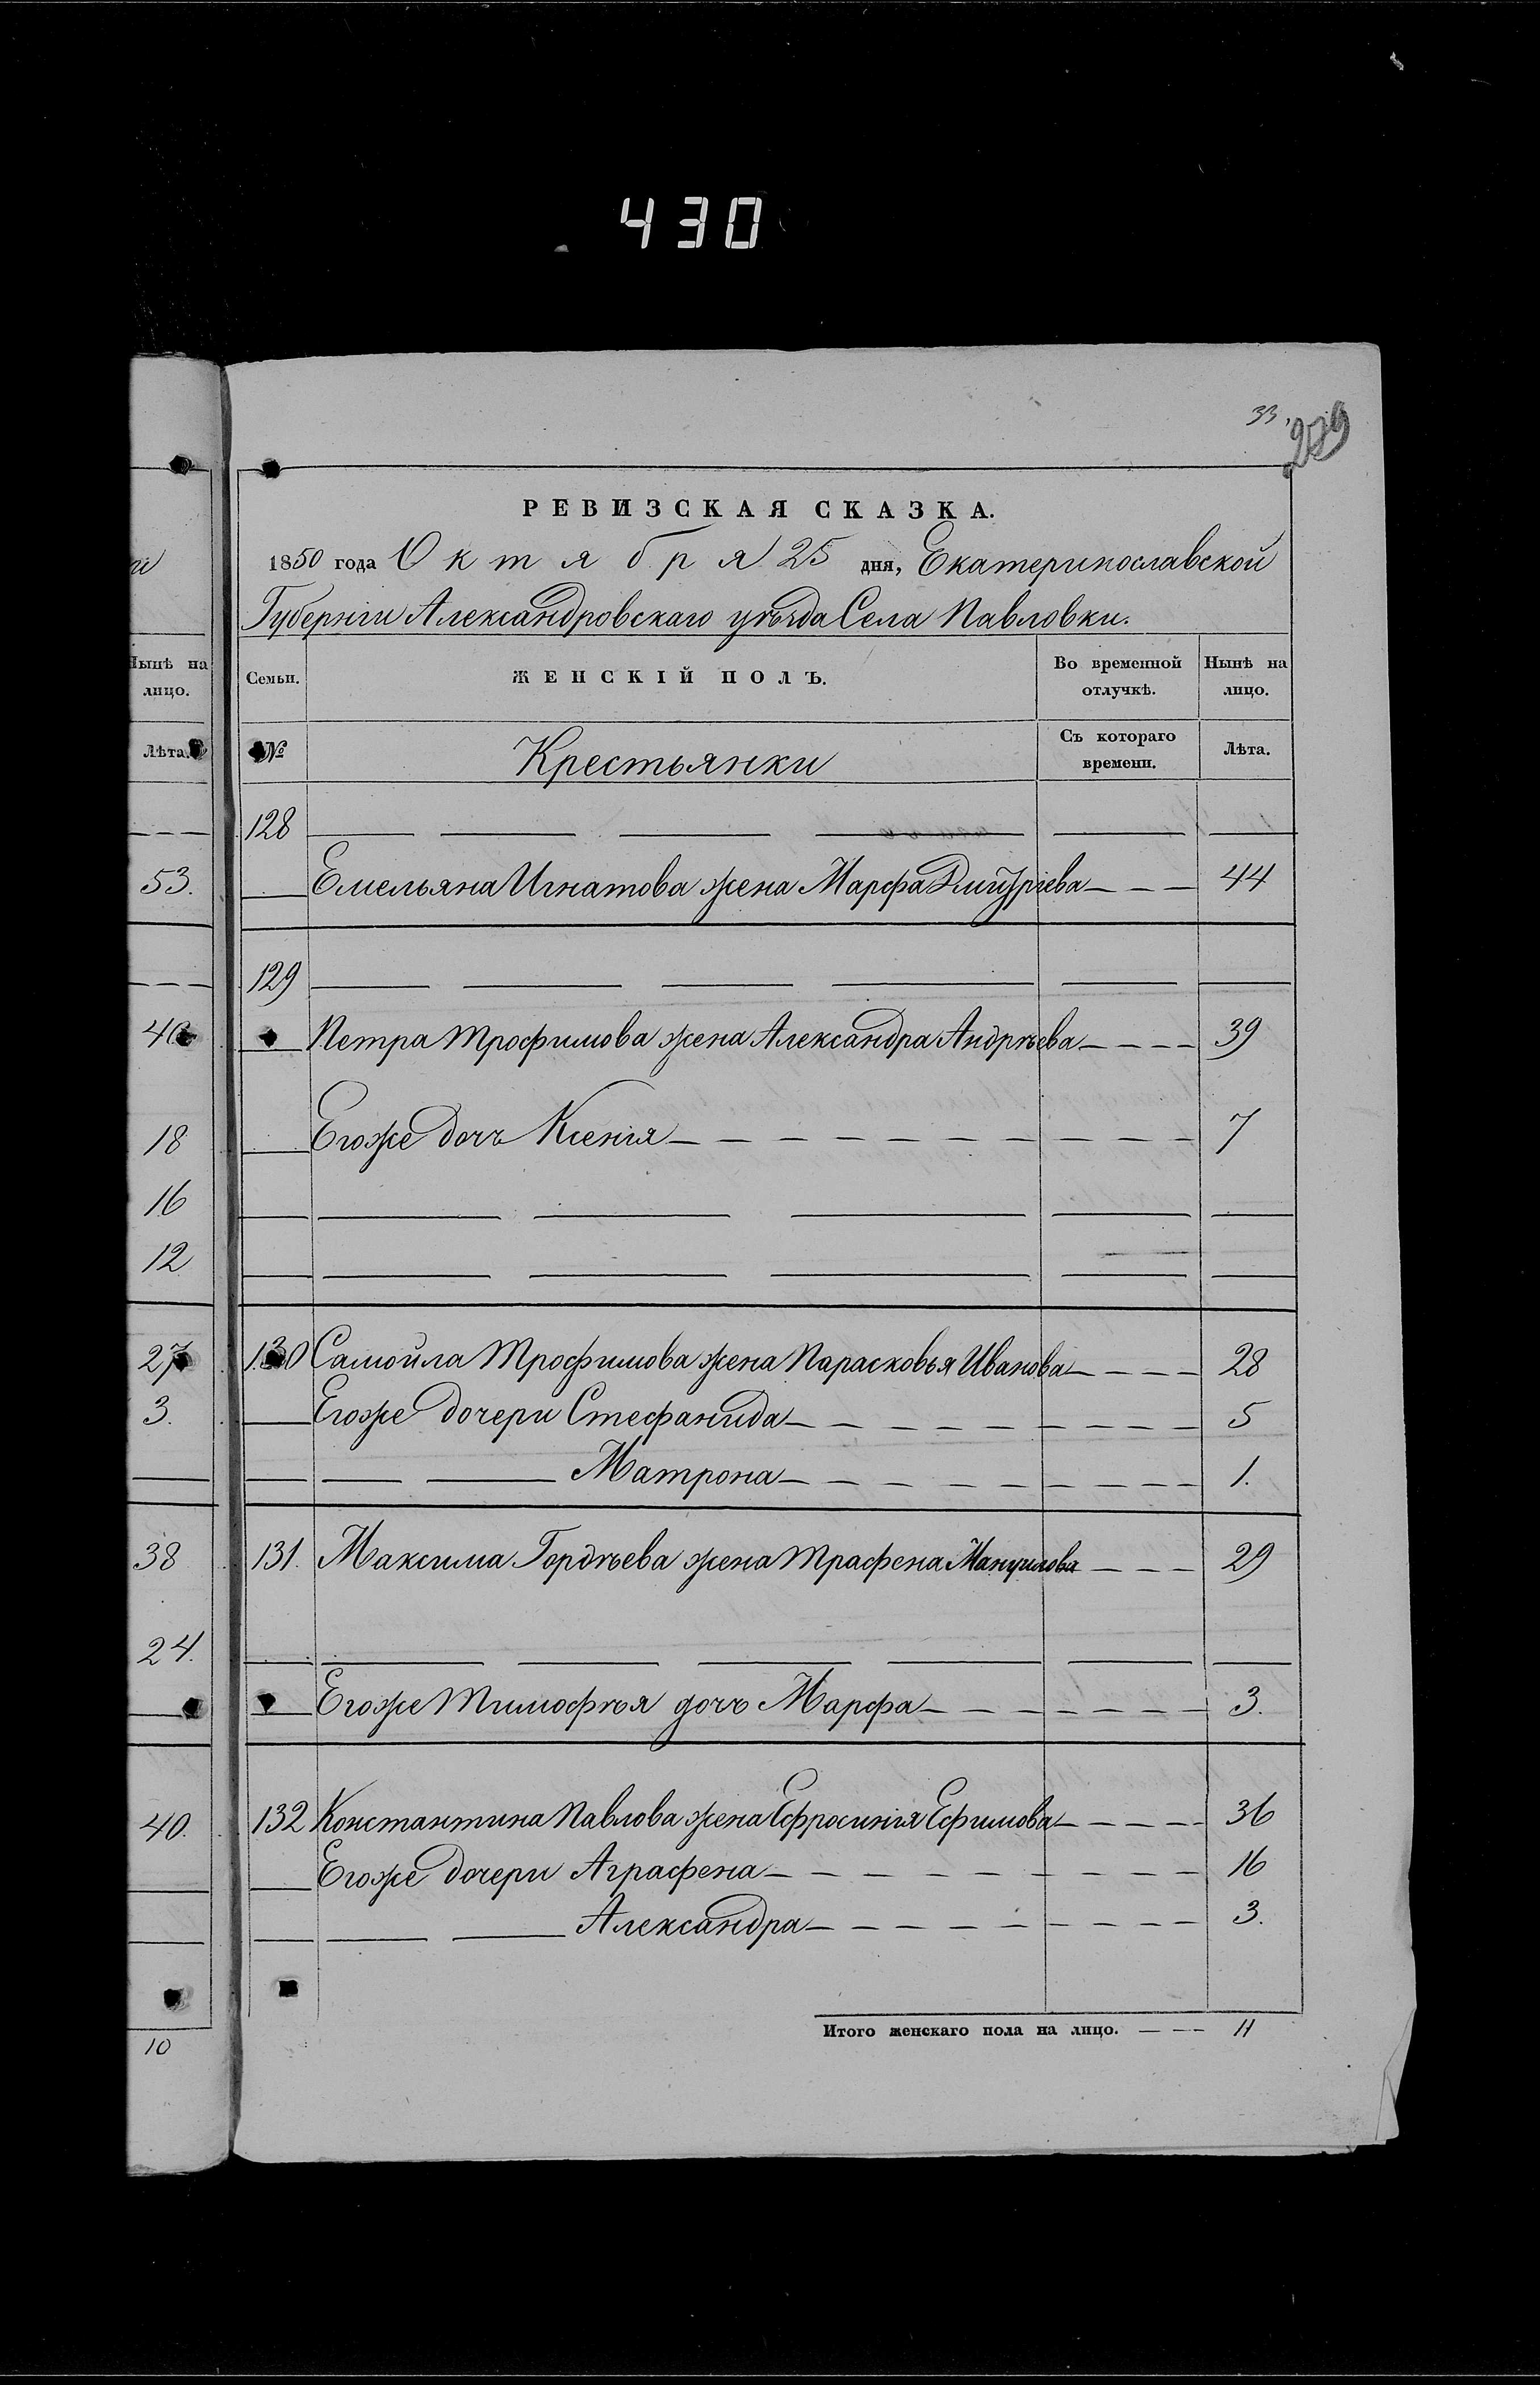 430
33
РЕВИЗСКАЯ СКАЗКА.
1850 года Октября 25 дня, Екатеринославской
Губерніи Александровскаго уѣзда Села Павловки.
Нынѣ на лицо.
Лѣта.
53.
18
16
12
27
3.
38
24.
40.
10
Семьи. ЖЕНСКІЙ ПОЛЪ. Во временной отлучкѣ. Нынѣ на лицо.
№ Крестьянки Съ котораго времени. Лѣта.
128
Емельяна Игнатова жена Марфа Дмитріева 44
129
Петра Трофимова жена Александра Андрѣева 39
Егоже дочь Ксенія 7
130 Самойла Трофимова жена Парасковья Иванова 28
Егоже дочери Стефанида 5
Матрона 1.
131. Максима Гордѣева жена Трафена Мануилова 29
Егоже Тимофѣя дочь Марфа 3.
132 Константина Павлова жена Ефросинія Ефимова 36
Егоже дочери Аграфена 16
Александра 3.
Итого женскаго пола на лицо. 11